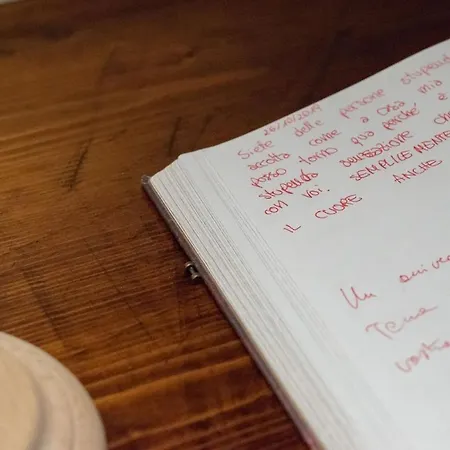 26/10/2019
Siete delle persone stupend
accolta come a casa mia
posso torno qua perché è
stupenda sensazione che
con voi. SEMPLICEMENTE
IL CUORE ANCHE
Un
Tena